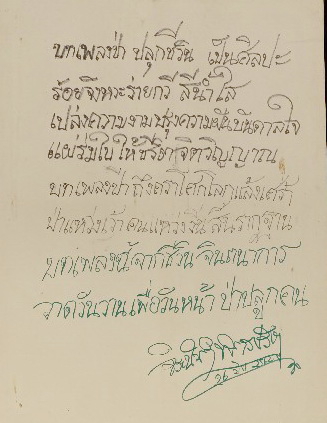 บทเพลงป่า ปลุกชีวิน เป็นศิลปะ
ร้อยจังหวะร่ายกวี สีน้ำใส
เปล่งความงามปรุงความฝันบันดาลใจ
แย้มใบ ให้ชีวิตจิตวิญญาณ
บทเพลงป่าถึงคราโศกโลกแล้งเศร้า
ป่าเหงาคน สิ้นรากฐาน
บทเพลงนี้จากชีวินจินตนาการ
วาดวันวานเพื่อวันหน้า ป่าปลูกคน